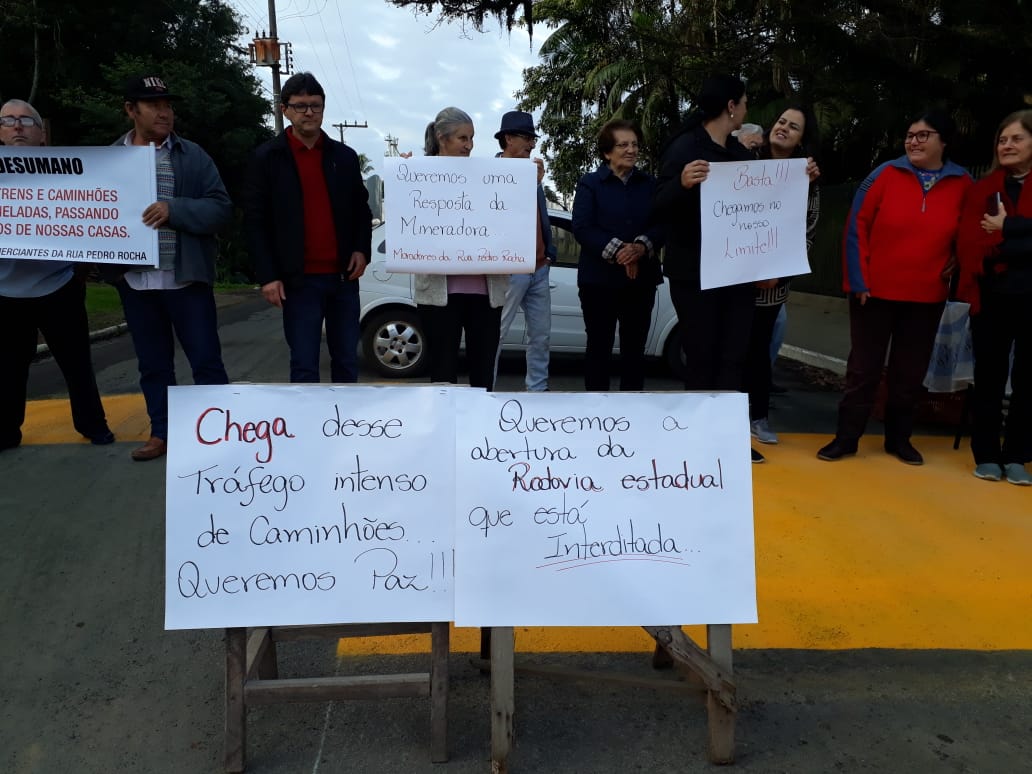 DESUMANO
TRENS E CAMINHÕES
ELADAS, PASSANDO
OS DE NOSSAS CASAS.
ERCIANTES DA RUA PEDRO ROCHA
Queremos uma
Resposta da
Mineradora...
Moradores da Rua Pedro Rocha
Basta!!!
Chegamos no
nosso
Limite!!!
Chega desse
Tráfego intenso
de Caminhões...
Queremos Paz!!!
Queremos a
abertura da
Rodovia estadual
que está
Interditada...